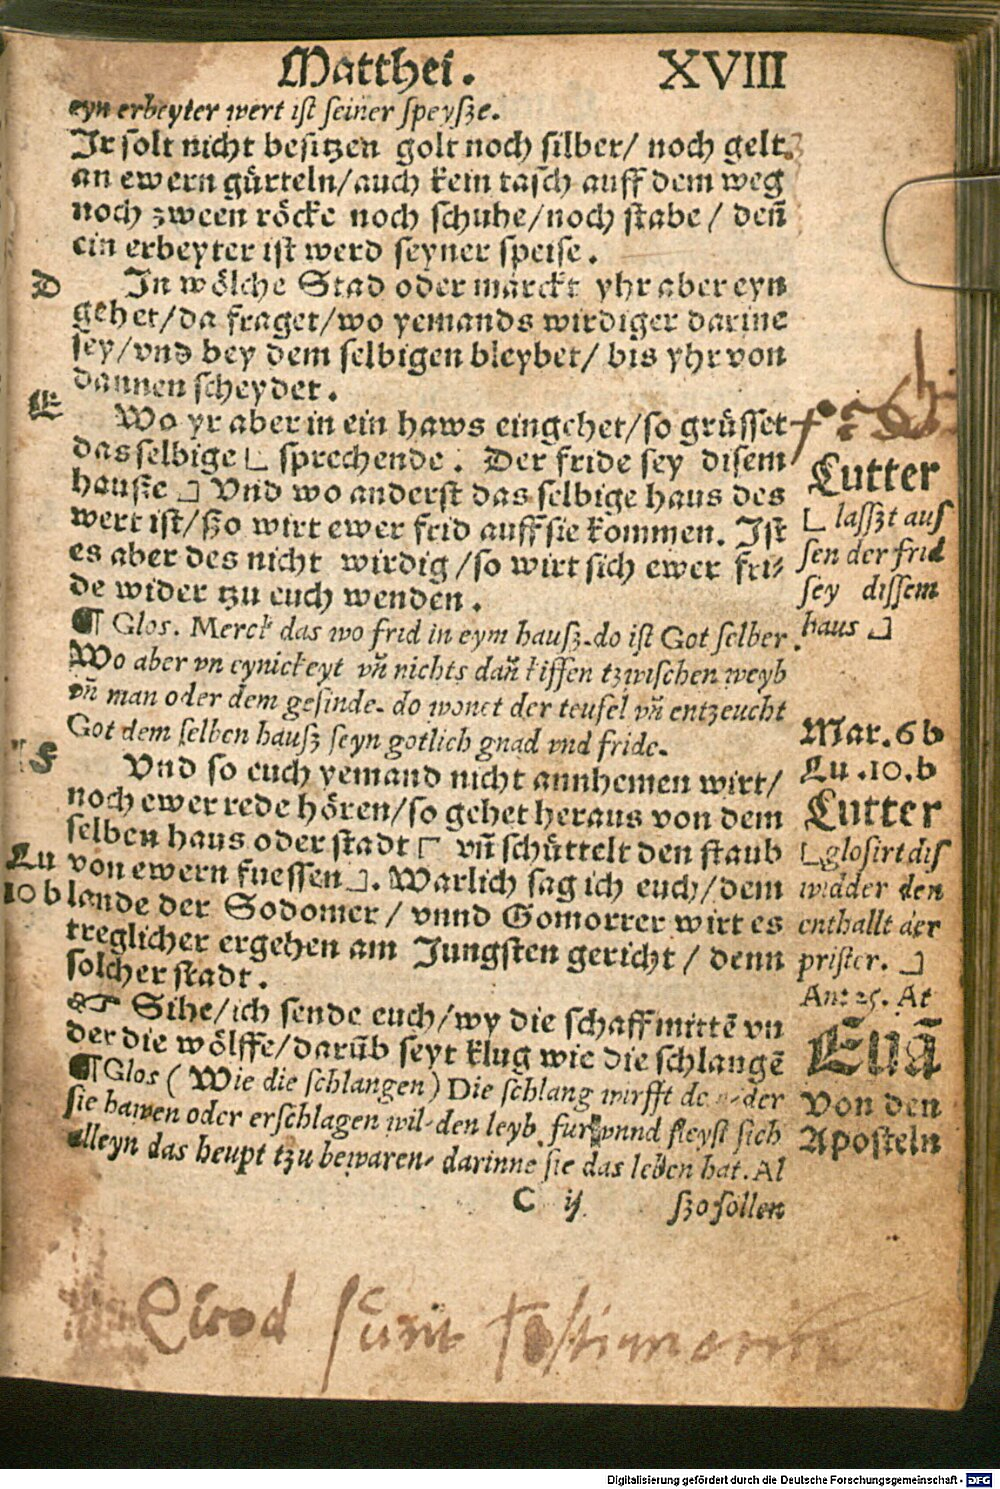 Matthei. XVIII
eyn erbeyter wert ist seiner speysze.
Ir solt nicht besitzen golt noch silber/ noch gelt
an ewern gürteln/auch kein tasch auff dem weg
noch zween röcke noch schuhe/noch stabe/ deñ
ein erbeyter ist werd seyner speise.
D
In wölche Stad oder marckt yhr aber eyn
gehet/da fraget/wo yemands wirdiger darine
sey/vnd bey dem selbigen bleybet/ bis yhr von
dannen scheydet.
E
Wo yr aber in ein haws eingehet/so grüsset
das selbige ⌊ sprechende. Der fride sey disem
hauße ⌋ Vnd wo anderst das selbige haus des
wert ist/ßo wirt ewer frid auff sie kommen. Ist
es aber des nicht wirdig/so wirt sich ewer fri-
de wider tzu euch wenden.
Lutter
⌊ lasszt aus
sen der frid
sey dissem
haus ⌋
¶ Glos. Merck das wo frid in eym hausz. do ist Got selber.
Wo aber vn eynickeyt vñ nichts dañ kiffen tzwischen weyb
vñ man oder dem gesinde. do wonet der teufel vñ entzeucht
Got dem selben hausz seyn gotlich gnad vnd fride.
F
Vnd so euch yemand nicht annhemen wirt/
noch ewer rede hören/so gehet heraus von dem
selben haus oder stadt ⌈ vñ schüttelt den staub
von ewern fuessen ⌋. Warlich sag ich euch/dem
lande der Sodomer/ vnnd Gomorrer wirt es
treglicher ergehen am Jungsten gericht/ denn
solcher stadt.
Lu
10 b
Mar. 6 b
Lu .10. b
Lutter
⌊glosirt dis
widder den
enthallt der
prister. ⌋
☞ Sihe/ich sende euch/wy die schaff mittē vn
der die wölffe/darūb seyt klug wie die schlangē
¶ Glos (Wie die schlangen) Die schlang wirfft der
sie hawen oder erschlagen wil den leyb fur vnnd fleyst sich
alleyn das heupt tzu bewaren, darinne sie das leben hat. Al
Euā
Von den
Aposteln
C ij szo sollen
sunt
Digitalisierung gefördert durch die Deutsche Forschungsgemeinschaft - DFG